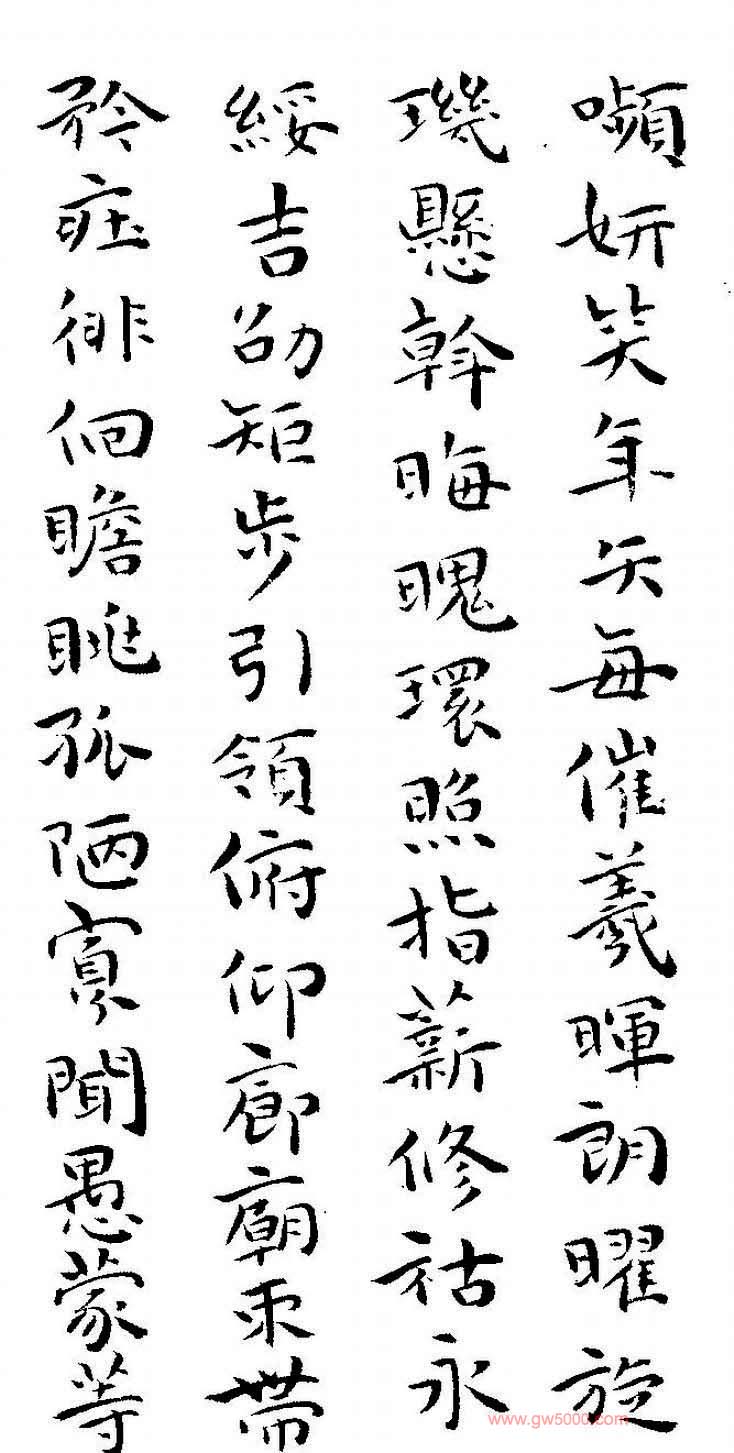 嚬妍笑年矢每催羲暉朗曜旋
璣懸斡晦魄環照指薪修祜永
綏吉劭矩步引領俯仰廊廟束帶
矜莊徘徊瞻眺孤陋寡聞愚蒙等
www.gw5000.com